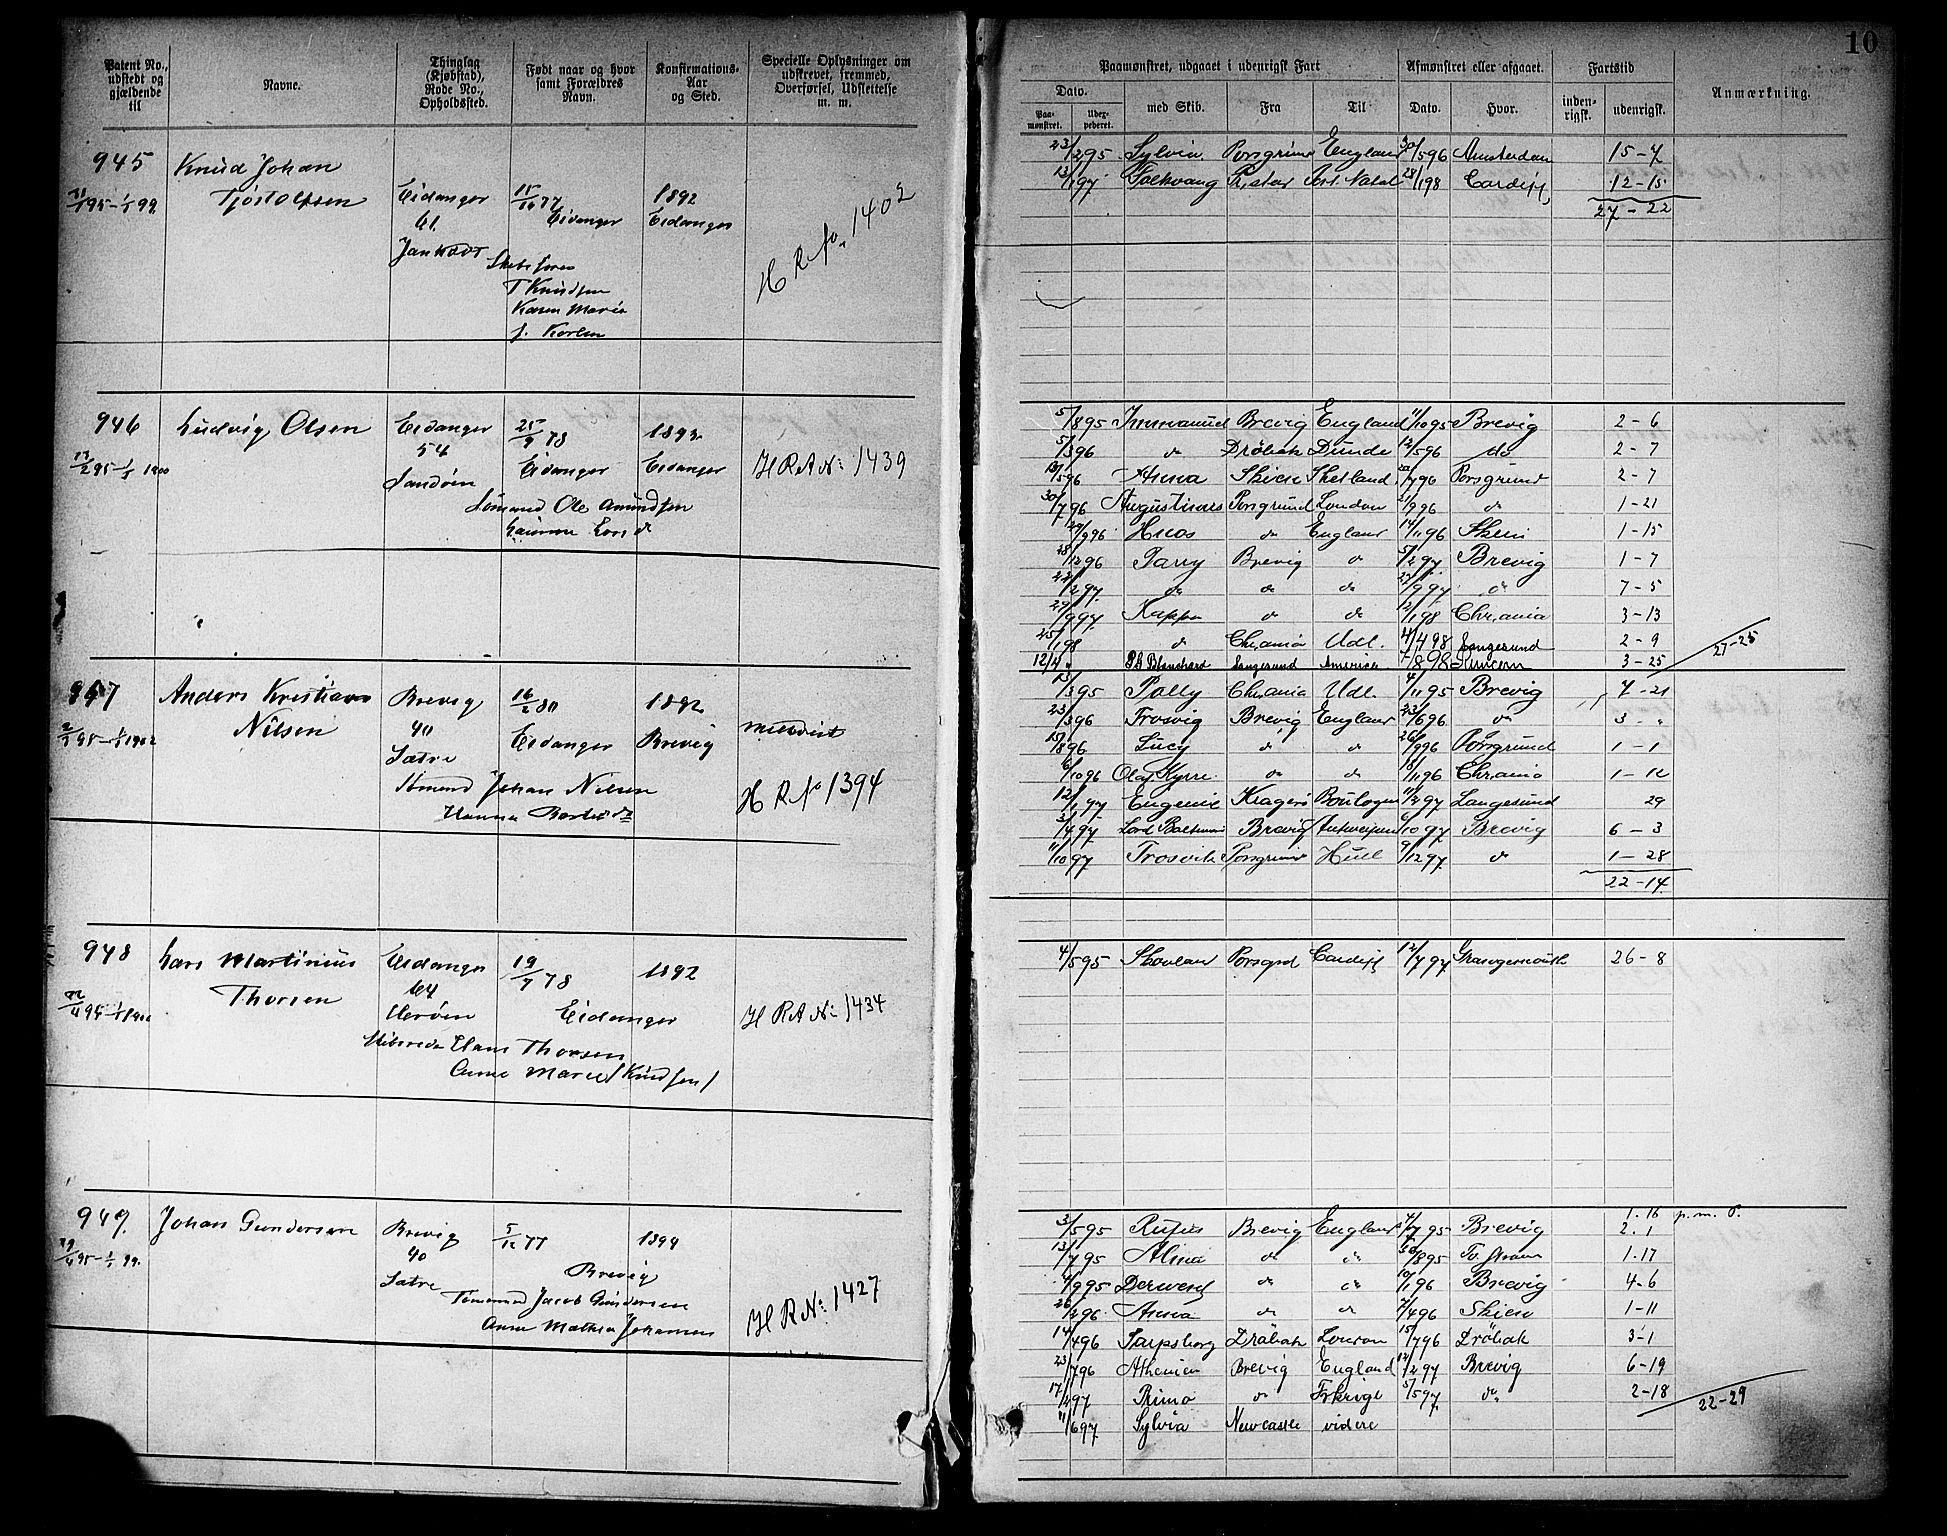 10
Patent No., udstedt og gjældende til
Navne.
Thinglag (Kjøbstad), Rode No., Opholdssted.
Født naar og hvor samt Forældres Navn.
Konfirmations-Aar og Sted.
Specielle Oplysninger om udskrevet, fremmed, Overførsel, Udslettelse m. m.
Paamønstret, udgaaet i udenrigsk Fart
Afmønstret eller afgaaet.
Fartstid
Anmærkning.
Dato.
Paa-mønstret.
med Skib.
Fra
Til
Dato.
Hvor.
inden-rigsk.
udenrigsk.
945
Knud Johan
Tjostolfsen
Eidanger
61
1892
Eidanger
Eidanger
T Knudsen
Karen Maria
H R No. 1402
23/2 95 Sylvia Porsgrund England 30/5 96 Amsterdam 15-7
13/1 97 Port Natal 28/1 98 Cardiff 12-15
27-22
946
Ludvig Olsen
Eidanger
54
Sandøen
25/9 78
Eidanger
Eidanger
Ole Amundsen
H R A No: 1439
5/8 95 Immanuel Brevig England 11/10 95 Brevig 2-6
5/3 96 do Dröbak Dunde 12/5 96 do 2-7
13/5 96 Anna Skien Shetland 20/7 96 Porsgrund 2-7
30/7 96 Augustinus Porsgrund London 21/9 96 do 1-21
29/9 96 do England 14/11 96 Skien 1-15
28/12 96 Parry Brevig do 5/2 97 Brevig 1-7
22/2 97 do do do 27/9 97 do 7-5
29/9 97 Kappa do do 12/1 98 Chr,ania 3-13
25/1 98 do Chr,ania Udl. 4/4 98 Langesund 2-9
12/4 " Blanchard Langesund America 7/8 98 3-25
27-25
947
Anders Kristian
Nilsen
Brevig
40
Sætre
16/2 80
Eidanger
1892
Brevig
Johan Nilsen
Hanna
H R No 1394
13/3 95 Polly Chr,ania Udl. 4/11 95 Brevig 7-21
23/3 96 Trosvig Brevig England 23/6 96 do 3-"
15/8 96 Lucy do do 26/9 96 Porsgrund 1-1
6/10 96 Olaf Kyrre do do 18/11 96 Chr,ania 1-12
12/1 97 Eugenie Kragerö Boulogne 11/2 97 Langesund 29
3/4 97 Brevig Antwerpen 6/10 97 Brevig 6-3
11/10 97 Trosvik Porsgrund Hull 9/12 97 do 1-28
22-14
948
Lars Martinius
Thorsen
Eidanger
64
Herøen
19/7 78
1892
Eidanger
Hans Thorsen
Anne Marie (Knudsen)
H R A No: 1434
4/5 95 Porsgrd Cardiff 12/7 97 26-8
949.
Johan Gundersen
Brevig
40
Sætre
5/12 77
1894
Brevig
Jacob Gundersen
Anne Mathea Johansen
H R No: 1427
1.16 p. m. P.
3/5 95 Rufus Brevig England 4/7 95 Brevig 2.1
13/7 95 Alma do do 30/8 95 1.17
4/9 95 Derwend do do 10/1 96 Brevig 4-6
26/2 96 Anna do do 7/4 96 Skien 1-11
14/4 96 Sarpsborg Dröbak London 15/7 96 Dröbak 3-1
23/7 96 Athenien Brevig England 12/2 97 Brevig 6-19
17/2 97 Primo do Frkrige 5/5 97 do 2-18
22-29
11/6 97 Sylvia Newcastle videre